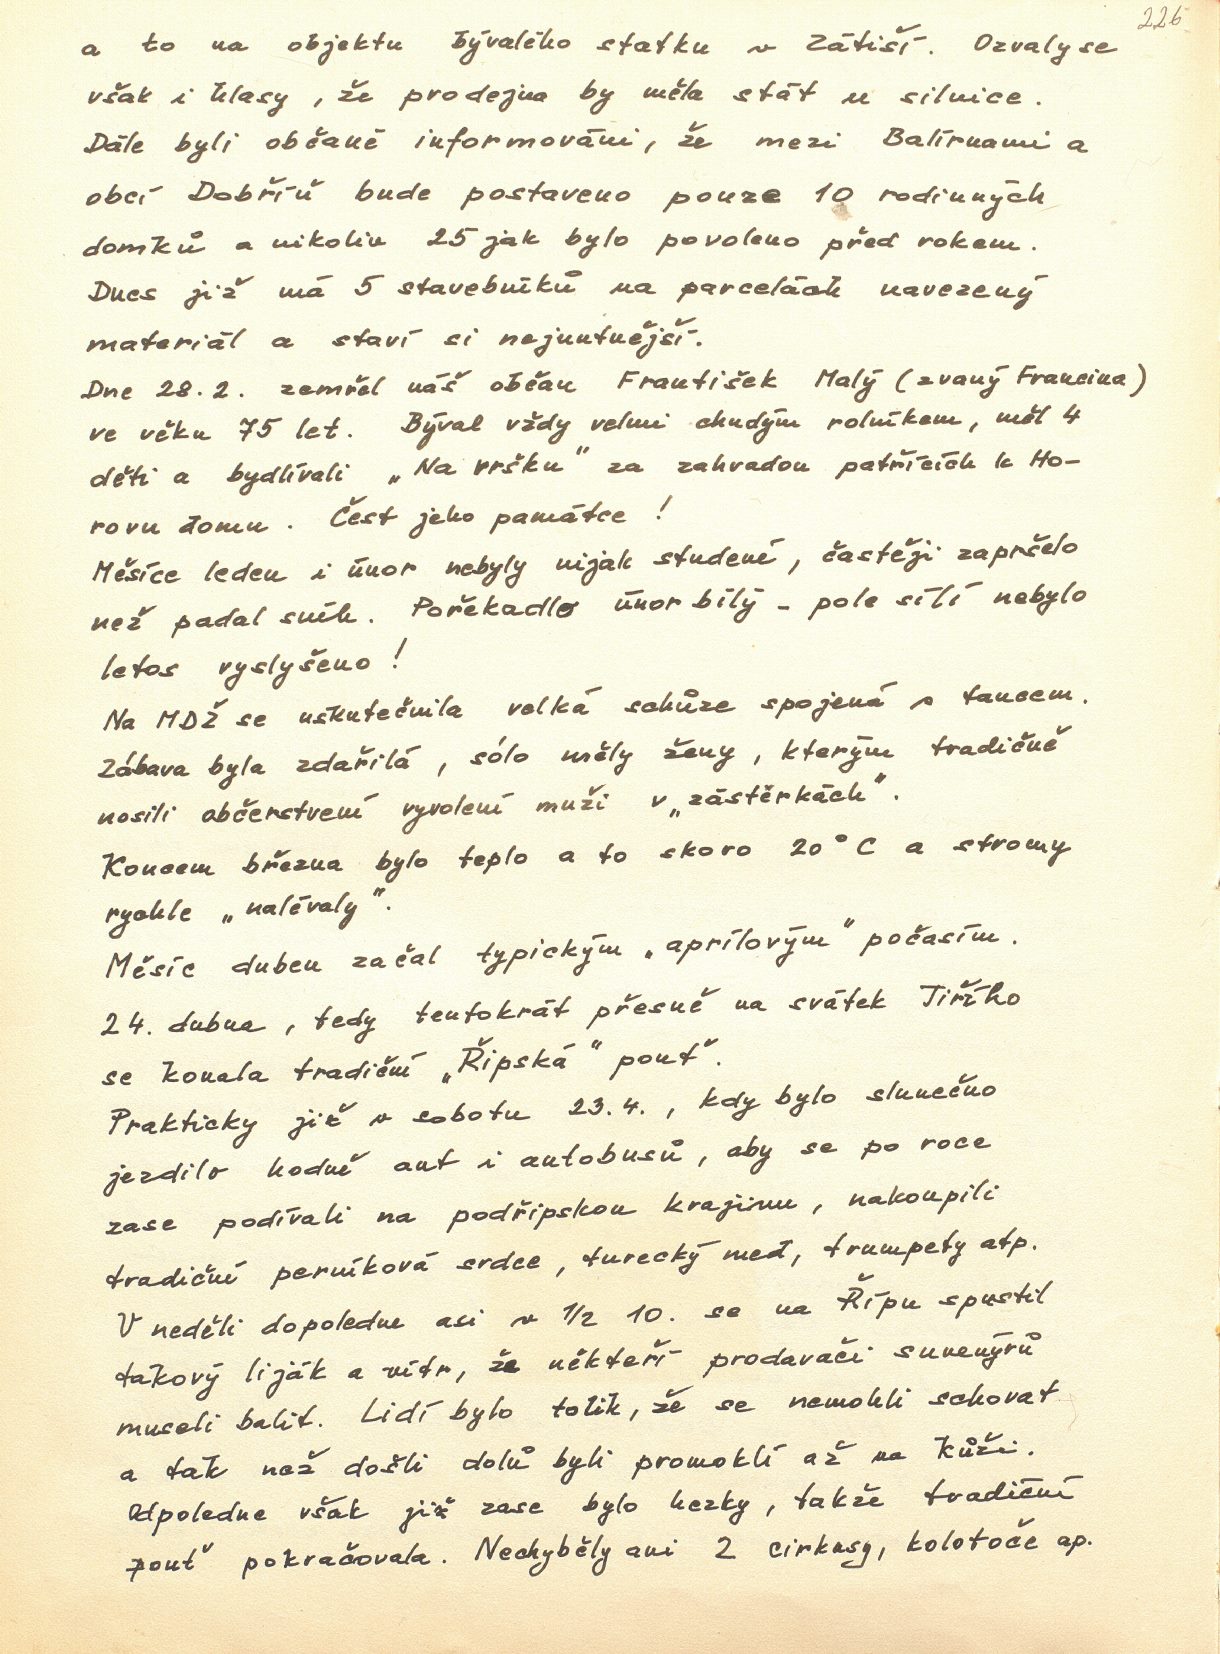 226
a to na objektu bývalého statku v Zátiší. Ozvaly se
však i hlasy, že prodejna by měla stát u silnice.
Dále byli občané informováni, že mezi Balírnami a
obcí Dobříň bude postaveno pouze 10 rodinných
domků a nikoliv 25 jak bylo povoleno před rokem.
Dnes již má 5 stavebníků na parcelách navezený
materiál a staví si nejnutnější.
Dne 28.2. zemřel náš občan František Malý (zvaný Francina)
ve věku 75 let. Býval vždy velmi chudým rolníkem, měl 4
děti a bydlívali „Na vršku" za zahradou patřících k Ho-
rovu domu. Čest jeho památce!
Měsíce leden i únor nebyly nijak studené, častěji zapršelo
než padal sníh. Pořekadlo únor bílý - pole sílí nebylo
letos vyslyšeno!
Na MDŽ se uskutečnila velká schůze spojená s tancem.
Zábava byla zdařilá, sólo měly ženy, kterým tradičně
nosili občerstvení vyvolení muži v „zástěrkách".
Koncem března bylo teplo a to skoro 20°C a stromy
rychle „nalévaly".
Měsíc duben začal typickým „aprílovým" počasím.
24. dubna, tedy tentokrát přesně na svátek Jiřího
se konala tradiční „Řipská" pouť.
Prakticky již v sobotu 23.4., kdy bylo slunečno
jezdilo hodně aut i autobusů, aby se po roce
zase podívali na podřipskou krajinu, nakoupili
tradiční perníková srdce, turecký med, trumpety atp.
V neděli dopoledne asi v 1/2 10. se na Řípu spustil
takový liják a vítr, že někteří prodavači suvenýrů
museli balit. Lidí bylo tolik, že se nemohli schovat
a tak než došli dolů byli promoklí až na kůži.
Odpoledne však již zase bylo hezky, takže tradiční
pouť pokračovala. Nechyběly ani 2 cirkusy, kolotoče ap.